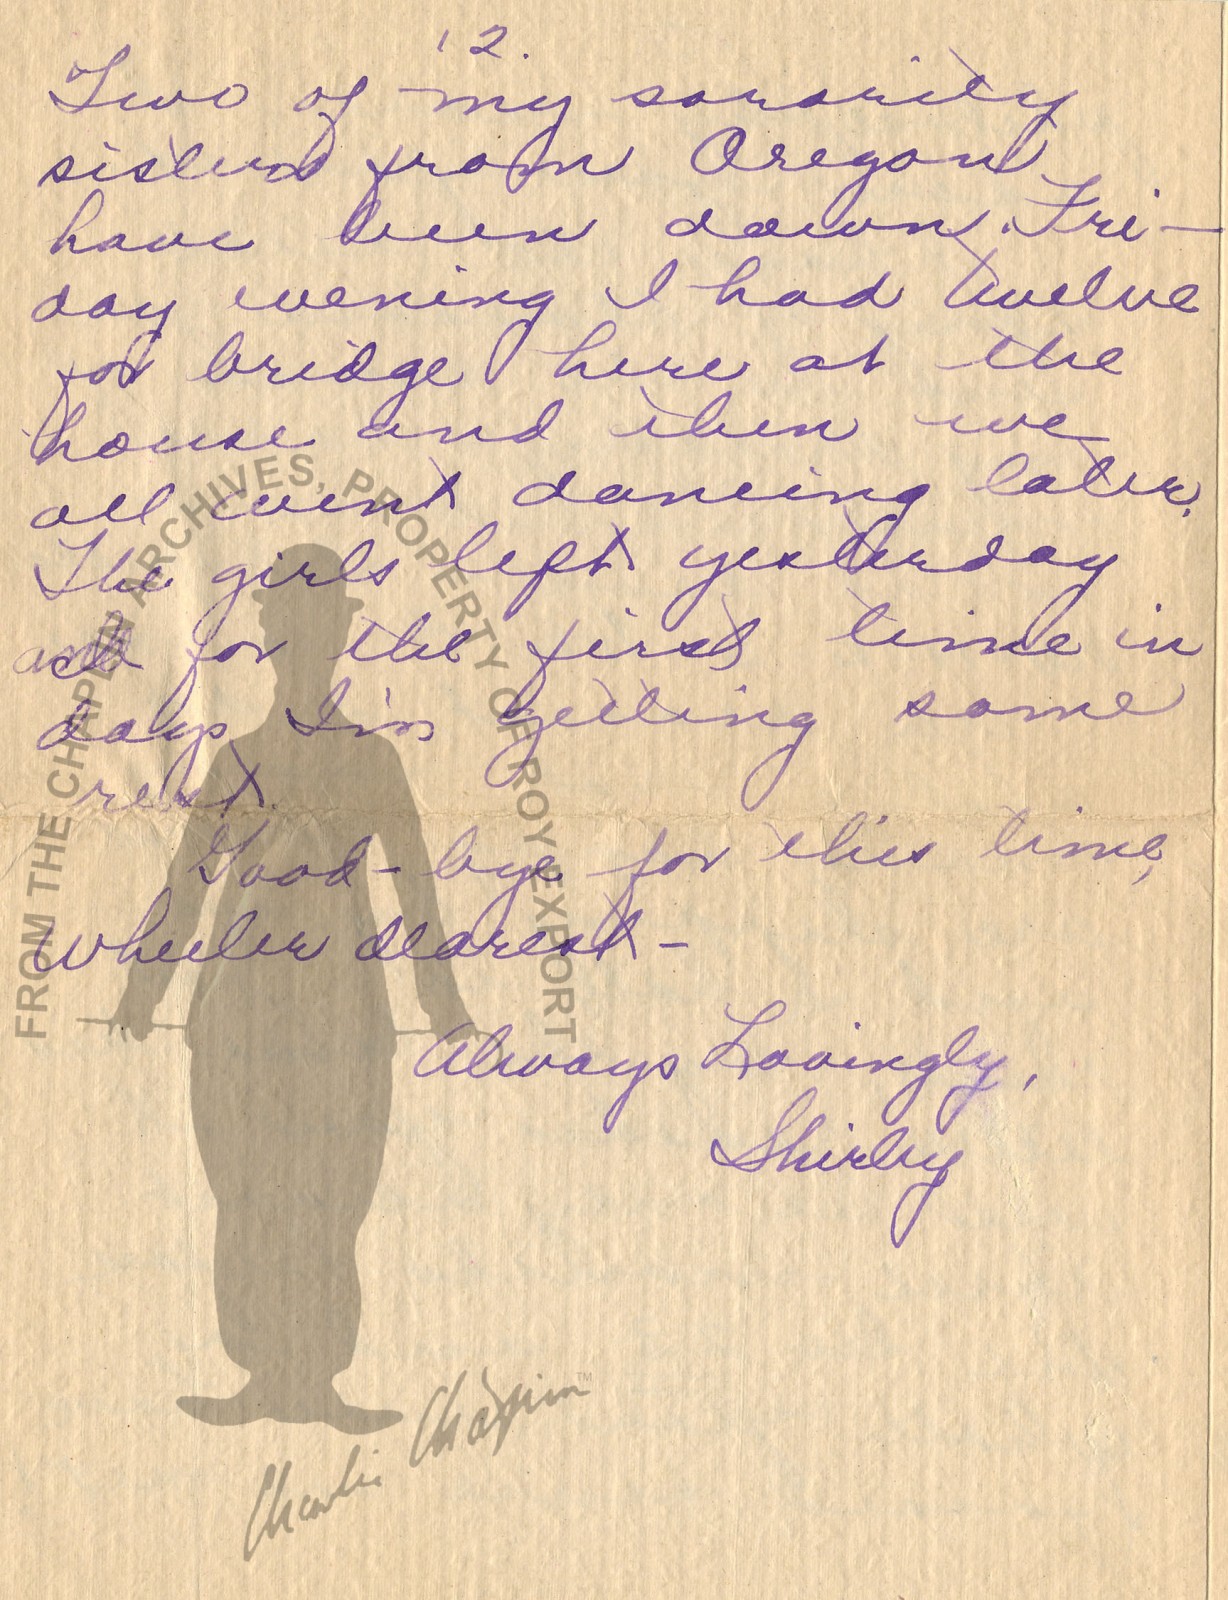 12.
Two of my sorority
sisters from Oregon
have been down. Fri-
day evening I had twelve
for bridge here at the
house and then we
all went dancing later.
The girls left yesterday
and for the first time in
days I'm getting some
rest.
Good-bye for this time,
Wheeler dearest -
Always Lovingly,
Shirley
FROM THE CHAPLIN ARCHIVES, PROPERTY OF ROY EXPORT
Charlie Chaplin™